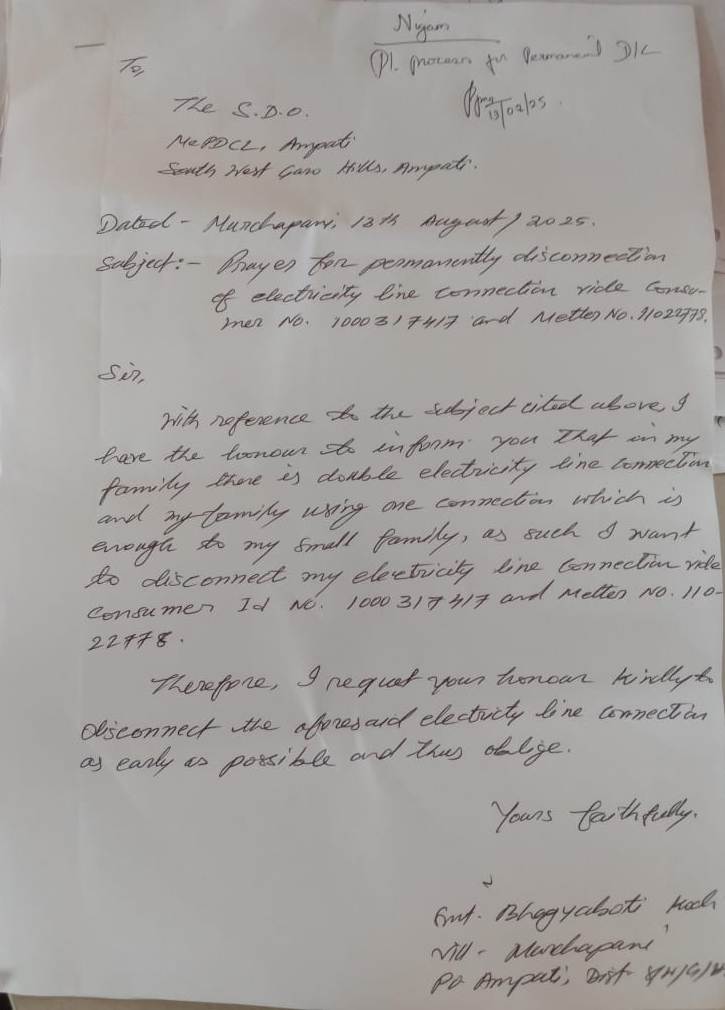 Nijam
Pl. process for Permanent D/C
13/02/25.
To,
The S.D.O.
MePDCL, Ampati
South West Garo Hills, Ampati.
Dated - Murchapani, 13th August, 2025.
Subject:- Prayer for permanently disconnection
of electricity line connection vide Consu-
mer No. 1000317417 and Metter No. 11022778.
Sir,
With reference to the subject cited above, I
have the honour to inform you that in my
family there is double electricity line connection
and my family using one connection which is
enough to my small family, as such I want
to disconnect my electricity line connection vide
Consumer Id No. 1000317417 and Metter No. 110-
22778.
Therefore, I requet your honour kindly to
disconnect the aforesaid electricty line connection
as early as possible and thus oblige.
Yours faithfully.
Smt. Bhagyaboti Koch
Vill - Murchapani
PO Ampati, Dist-